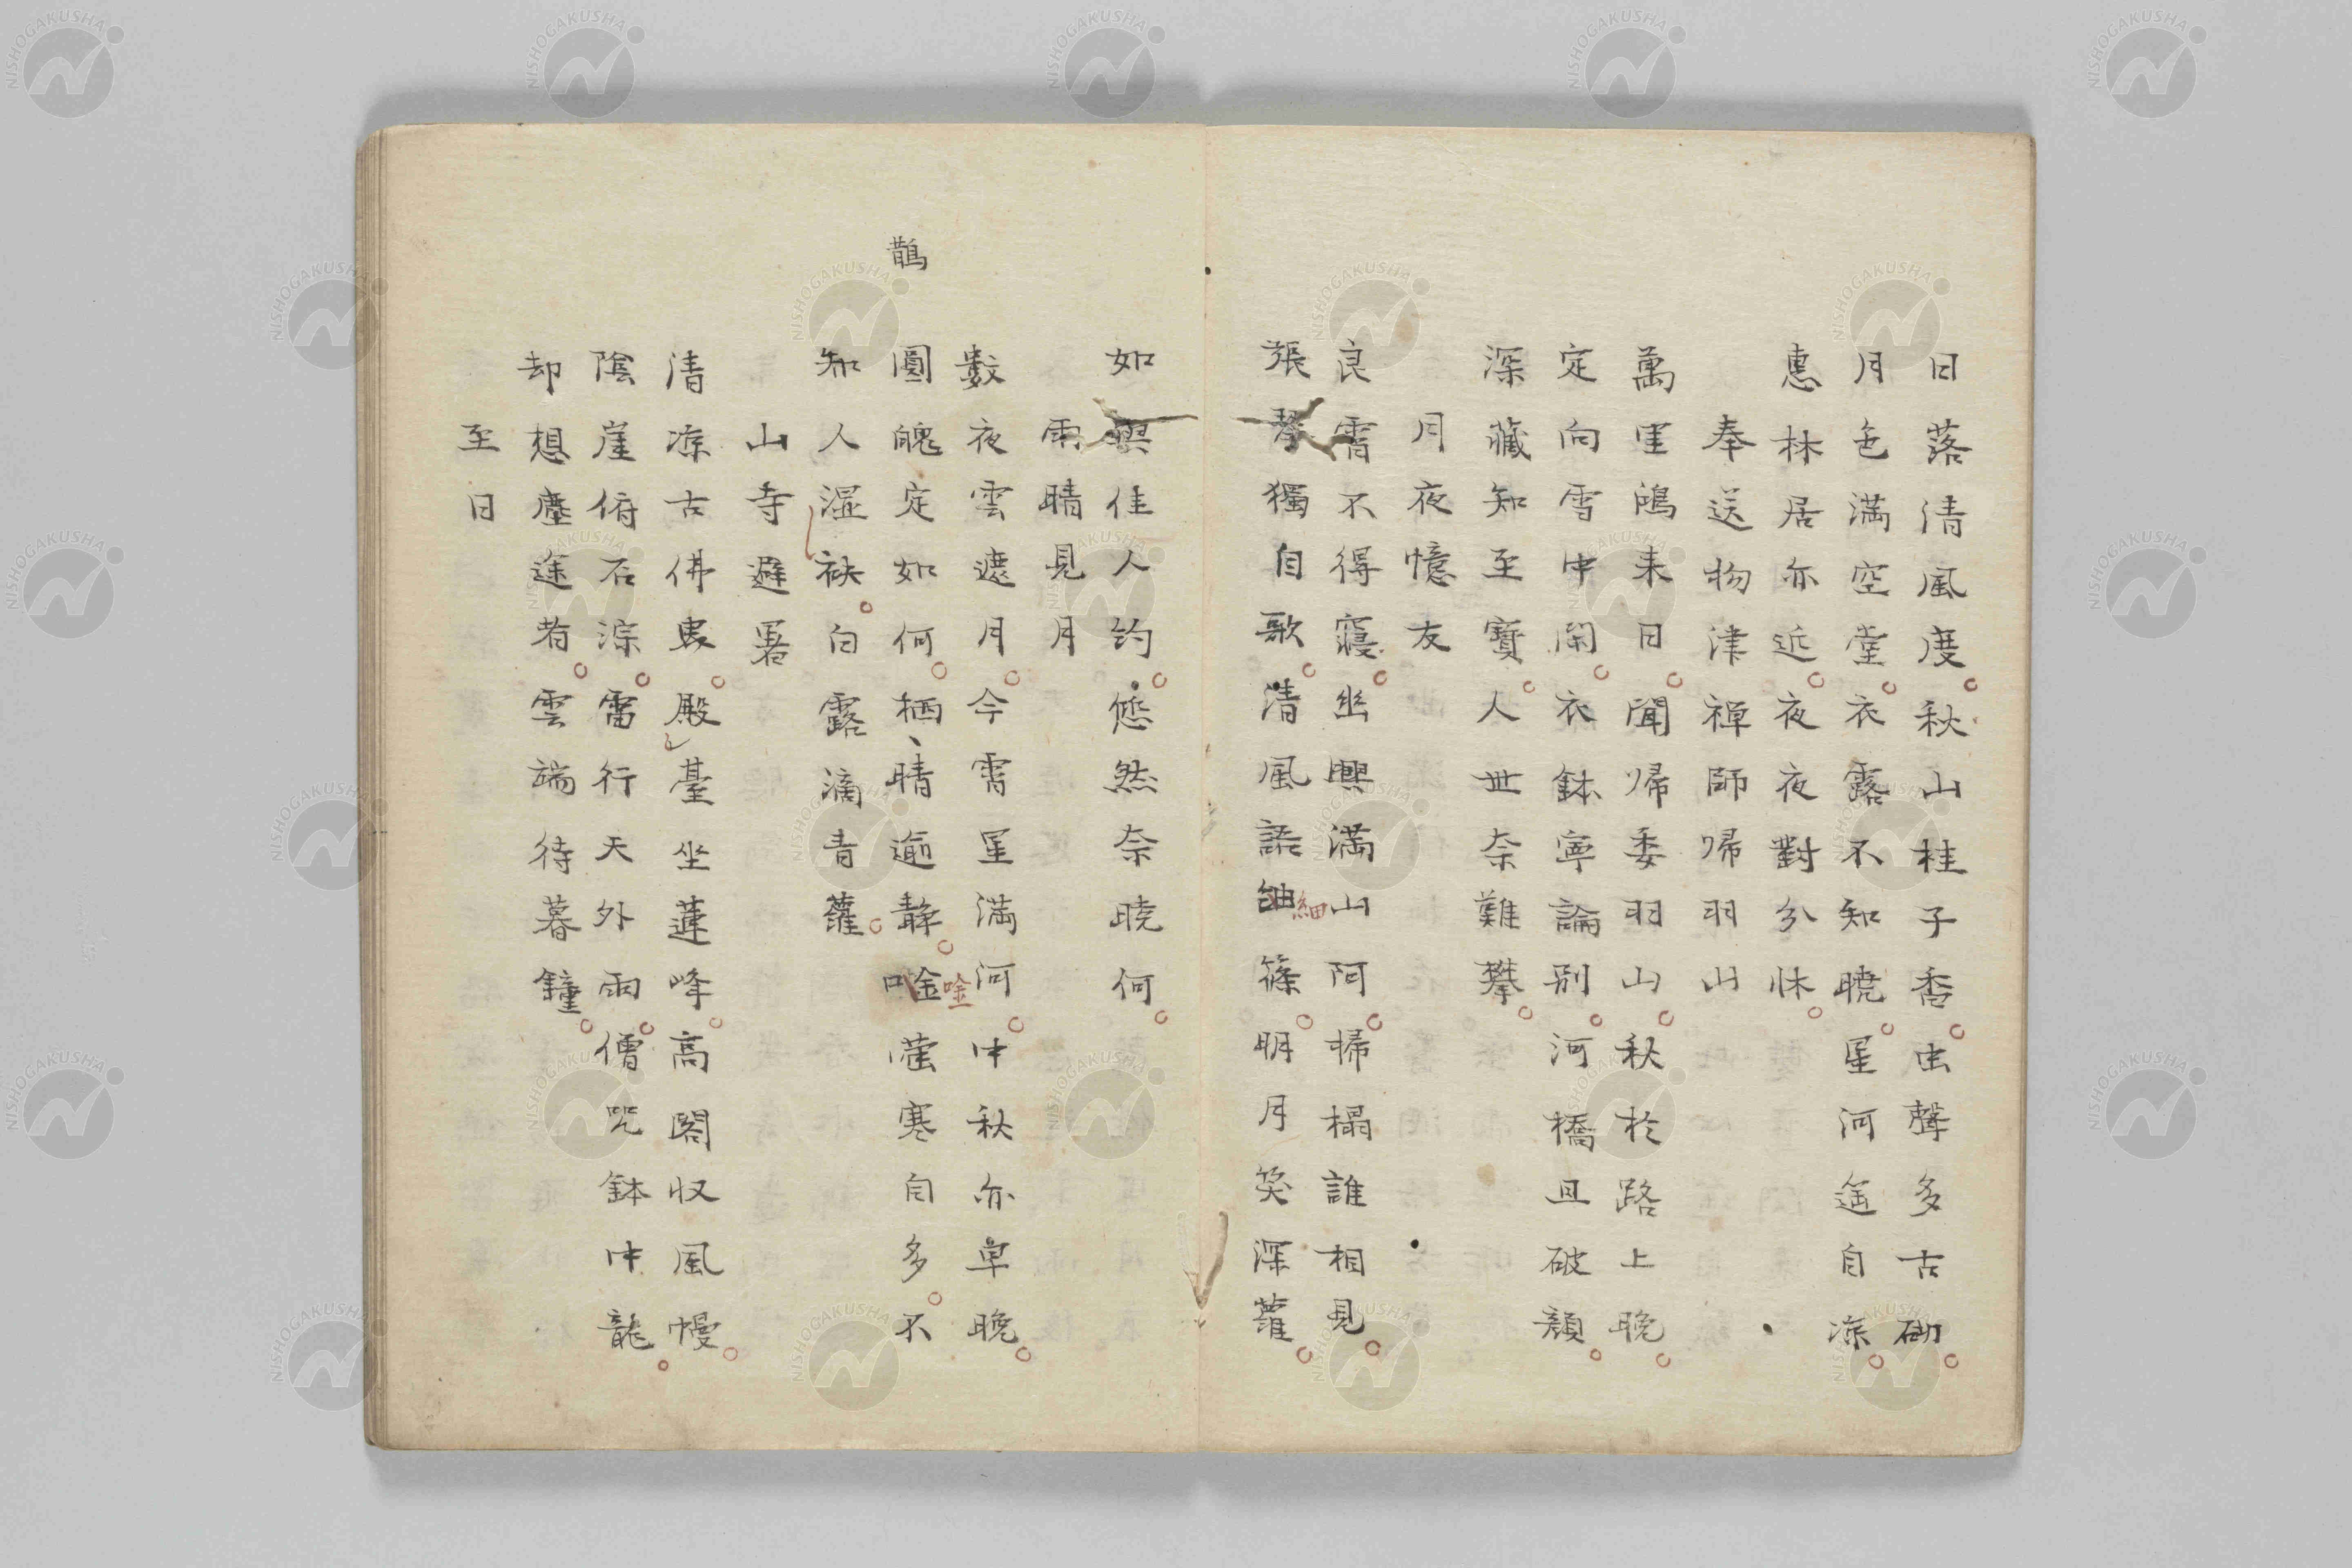 日落清風度秋山桂子香虫聲多古砌
月色満空堂衣露不知曉星河遥自凉
惠林居亦近夜夜對分牀
奉送物津禅師帰羽山
萬里鴻来日聞帰委羽山秋於路上晩
定向雪中閑衣鉢寧論别河橋且破顔
深藏知至寶人世奈難攀
月夜憶友
良霄不得寝幽興満山阿掃榻誰相見
張琴獨自歌清風語細篠明月笑深蘿
細
如與佳人约悠然奈曉何
雨晴見月
數夜雲遮月今霄星満河中秋亦卑晩
圓魄定如何栖晴逾静唫螢寒自多不
鵲
唫
知人湿袂白露滴青蘿
山寺避暑
清凉古佛殿臺坐蓮峰高閣収風幔
陰崖俯石淙雷行天外雨僧咒鉢中龍
却想塵途者雲端待暮鐘
至日
NISHOGAKUSHA